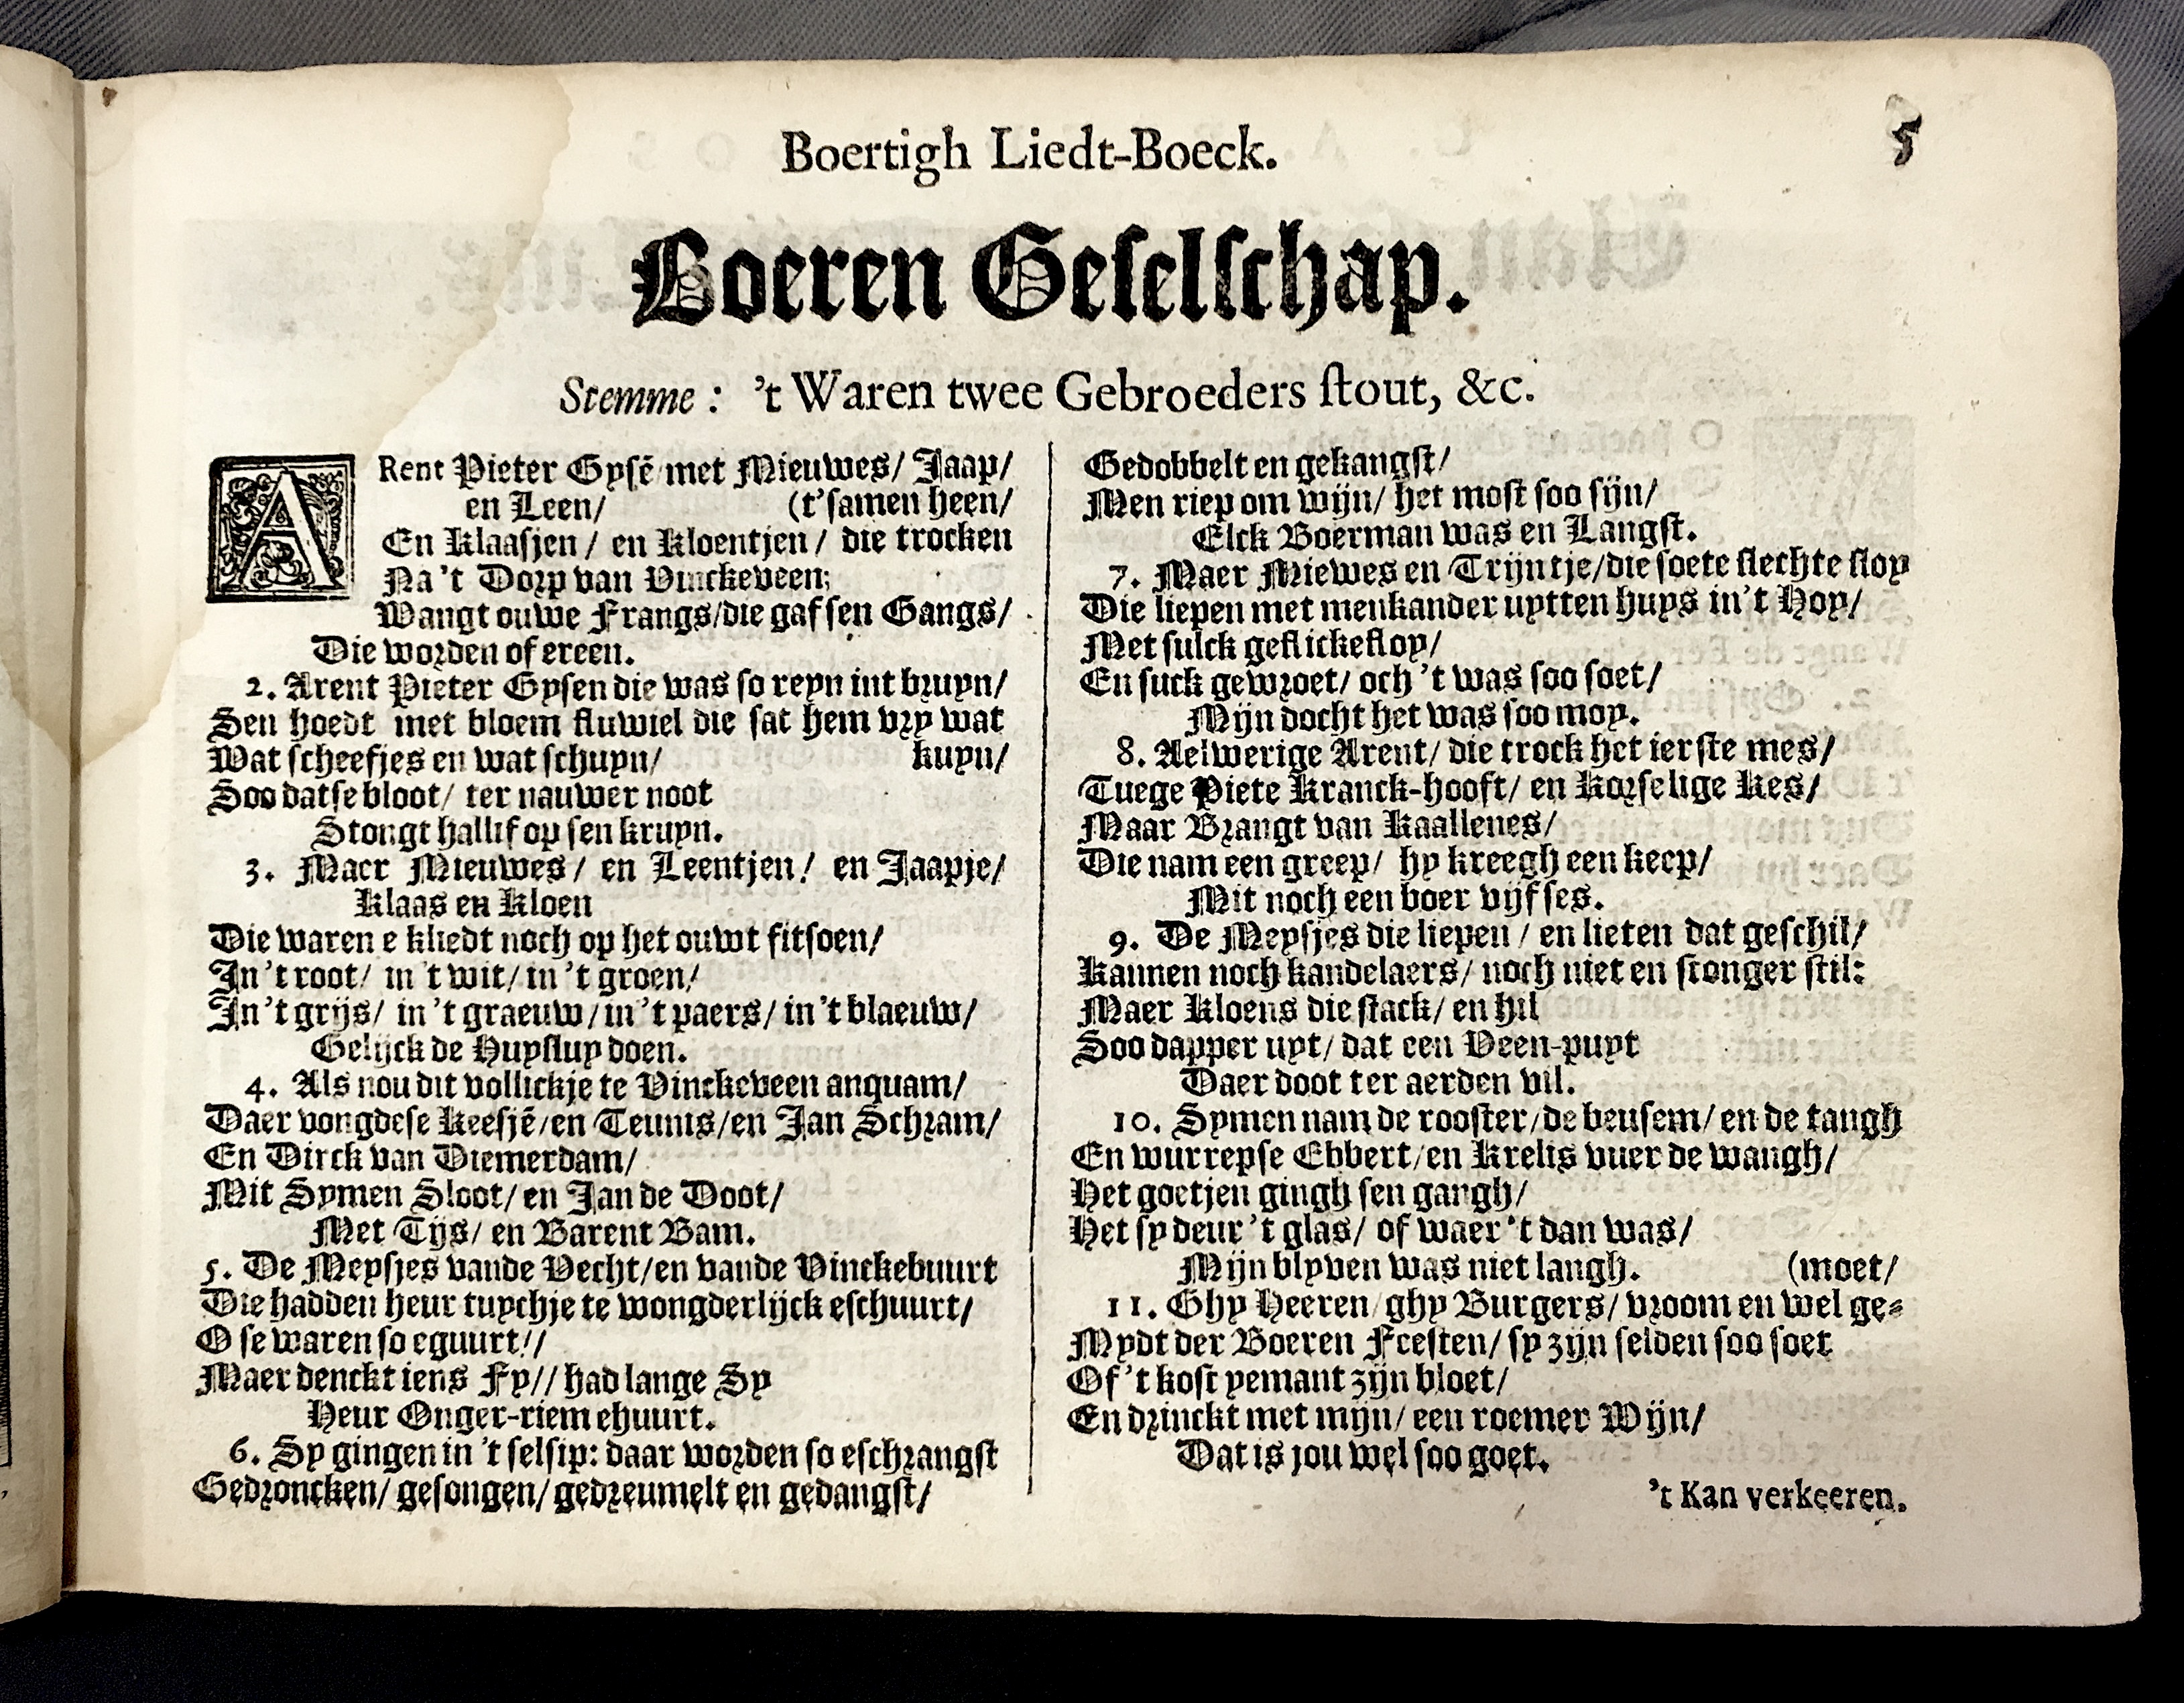 Boertigh Liedt-Boeck.
5
Boeren Geselschap.
Stemme: 't Waren twee Gebroeders stout, &c.
ARent Pieter Gysē met Mieuwes/ Jaap/
en Leen/ (t'samen heen/
En Klaasjen / en Kloentjen / die trocken
Na 't Dorp van Vinckeveen;
Wangt ouwe Frangs/die gaf sen Gangs/
Die worden of ereen.
2. Arent Pieter Gysen die was so reyn int bruyn/
Sen hoedt met bloem fluwiel die sat hem vry wat
Wat scheefjes en wat schuyn/ kuyn/
Soo datse bloot/ ter nauwer noot
Stongt hallif op sen kruyn.
3. Maer Mieuwes / en Leentjen / en Jaapje/
Klaas en Kloen
Die waren e kliedt noch op het ouwt fitsoen/
In 't root/ in 't wit/ in 't groen/
In 't grijs/ in 't graeuw/in 't paers/ in 't blaeuw/
Gelijck de Huysluy doen.
4. Als nou dit vollickje te Vinckeveen anquam/
Daer vongdese Keesjē/en Teunis/en Jan Schram/
En Dirck van Diemerdam/
Mit Symen Sloot/ en Jan de Doot/
Met Tijs/ en Barent Bam.
5. De Meysjes vande Vecht/en vande Vinckebuurt
Die hadden heur tuychje te wongderlijck eschuurt/
O se waren so eguurt!/
Maer denckt iens Fy// had lange Sy
Heur Onger-riem ehuurt.
6. Sy gingen in 't selsip: daar worden so eschrangst
Gedroncken/ gesongen/ gedreumelt en gedangst/
Gedobbelt en gekangst/
Men riep om wijn/ het most soo sijn/
Elck Boerman was en Langst.
7. Maer Miewes en Trijntje/die soete slechte sloy
Die liepen met menkander uytten huys in 't Hoy/
Met sulck geflickefloy/
En suck gewroet/ och 't was soo soet/
Mijn docht het was soo moy.
8. Aelwerige Arent/ die trock het ierste mes/
Tuege Piete Kranck-hooft/ en Korselige Kes/
Maar Brangt van Kaallenes/
Die nam een greep/ hy kreegh een keep/
Mit noch een boer vijf ses.
9. De Meysjes die liepen / en lieten dat geschil/
Kannen noch kandelaers/ noch niet en stonger stil:
Maer Kloens die stack/ en hil
Soo dapper uyt/ dat een Veen-puyt
Daer doot ter aerden vil.
10. Symen nam de rooster/de beusem/ en de tangh
En wurrepse Ebbert/en Krelis vuer de wangh/
Het goetjen gingh sen gangh/
Het sy deur 't glas/ of waer 't dan was/
Mijn blyven was niet langh. (moet/
11. Ghy Heeren/ghy Burgers/ vroom en wel ge-
Mydt der Boeren Feesten/ sy zijn selden soo soet
Of 't kost yemant zijn bloet/
En drinckt met mijn/ een roemer Wijn/
Dat is jou wel soo goet.
't Kan verkeeren.